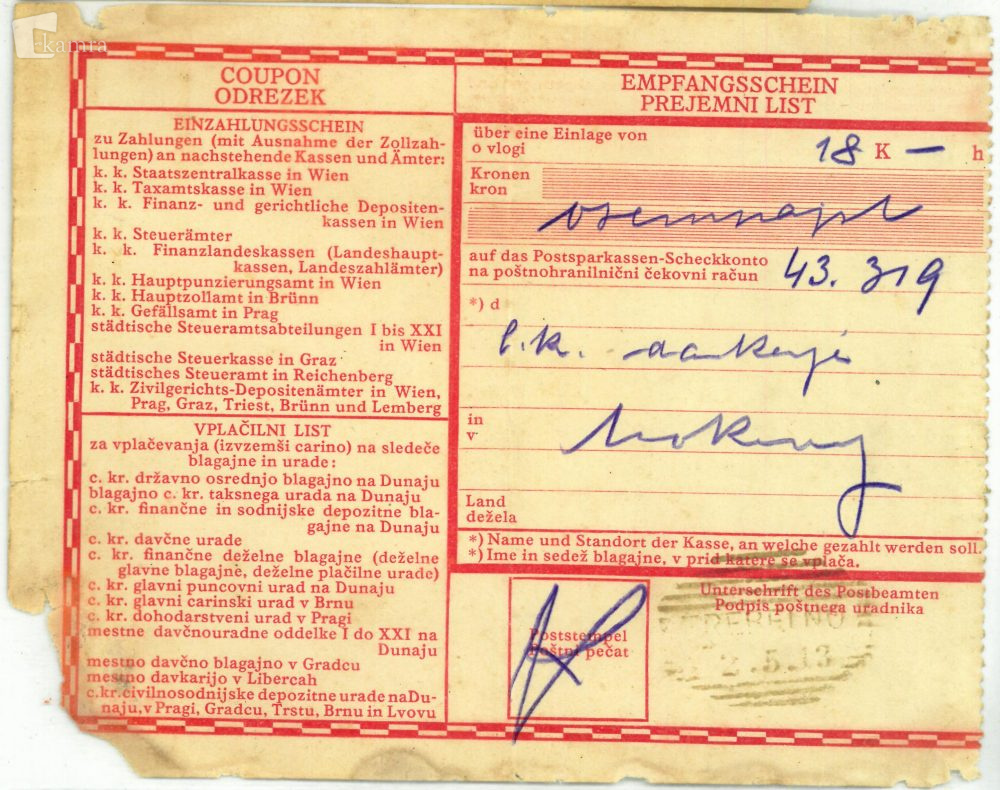 kamra
COUPON
ODREZEK
EINZAHLUNGSSCHEIN
zu Zahlungen (mit Ausnahme der Zollzah-
lungen) an nachstehende Kassen und Ämter:
k. k. Staatszentralkasse in Wien
k. k. Taxamtskasse in Wien
k. k. Finanz- und gerichtliche Depositen-
kassen in Wien
k. k. Steuerämter
k. k. Finanzlandeskassen (Landeshaupt-
kassen, Landeszahlämter)
k. k. Hauptpunzierungsamt in Wien
k. k. Hauptzollamt in Brünn
k. k. Gefällsamt in Prag
städtische Steueramtsabteilungen I bis XXI
in Wien
städtische Steuerkasse in Graz
städtisches Steueramt in Reichenberg
k. k. Zivilgerichts-Depositenämter in Wien,
Prag, Graz, Triest, Brünn und Lemberg
VPLAČILNI LIST
za vplačevanja (izvzemši carino) na sledeče
blagajne in urade:
c. kr. državno osrednjo blagajno na Dunaju
blagajno c. kr. taksnega urada na Dunaju
c. kr. finančne in sodnijske depozitne bla-
gajne na Dunaju
c. kr. davčne urade
c. kr. finančne deželne blagajne (deželne
glavne blagajne, deželne plačilne urade)
c. kr. glavni puncovni urad na Dunaju
c. kr. glavni carinski urad v Brnu
c. kr. dohodarstveni urad v Pragi
mestne davčnouradne oddelke I do XXI na
Dunaju
mestno davčno blagajno v Gradcu
mestno davkarijo v Libercah
c. kr. civilnosodnijske depozitne urade na Du-
naju, v Pragi, Gradcu, Trstu, Brnu in Lvovu
EMPFANGSSCHEIN
PREJEMNI LIST
über eine Einlage von
o vlogi
18 K — h
Kronen
kron
osemnajst
auf das Postsparkassen-Scheckkonto
na poštnohranilnični čekovni račun 43.319
*) d
c. k. davkarji
in
v
Land
dežela
*) Name und Standort der Kasse, an welche gezahlt werden soll.
*) Ime in sedež blagajne, v prid katere se vplača.
Poststempel
Poštni pečat
Unterschrift des Postbeamten
Podpis poštnega uradnika
2.5.13